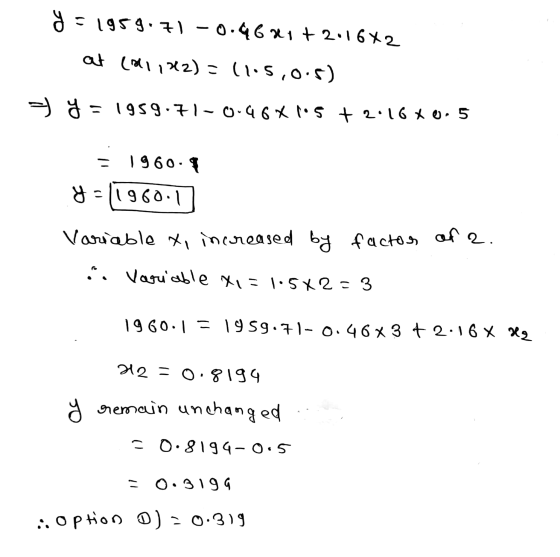 y = 1959.71 - 0.46x1 + 2.16x2
at (x1, x2) = (1.5, 0.5)
⇒ y = 1959.71 - 0.46 × 1.5 + 2.16 × 0.5
= 1960.1
y = 1960.1
Variable x1 increased by factor of 2.
∴ Variable x1 = 1.5×2 = 3
1960.1 = 1959.71 - 0.46×3 + 2.16 × x2
x2 = 0.8194
y remain unchanged
= 0.8194 - 0.5
= 0.3194
∴ option D) = 0.319